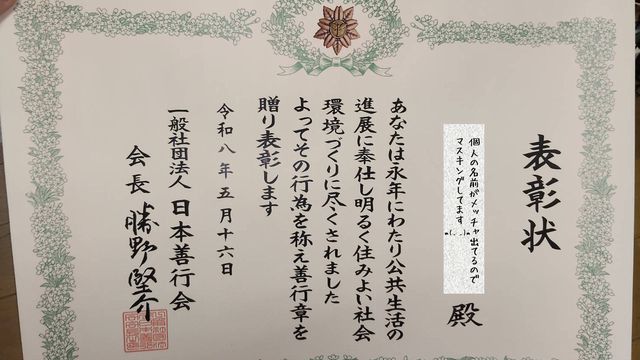 表彰状
個人の名前がメッチャ出てるので
マスキングしてます
m(_ _)m
殿
あなたは永年にわたり公共生活の
進展に奉仕し明るく住みよい社会
環境づくりに尽くされました
よってその行為を称え善行章を
贈り表彰します
令和八年五月十六日
一般社団法人 日本善行会
会長 勝野堅介